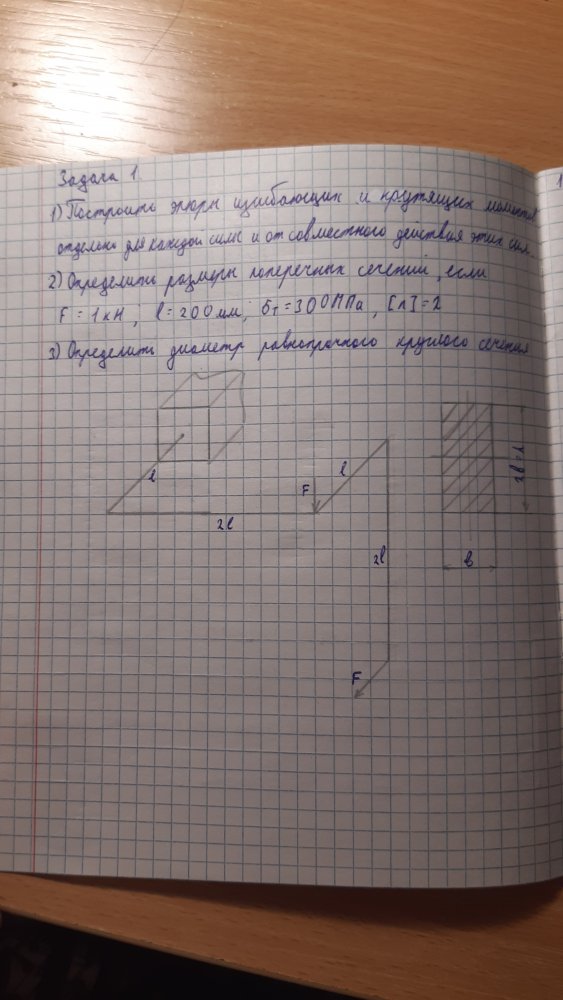 Задача 1.
1) Построить эпюры изгибающих и крутящих моментов
отдельно для каждой силы и от совместного действия этих сил.
2) Определить размеры поперечных сечений, если
F = 1 кН, l = 200 мм, σт = 300 МПа, [n] = 2
3) Определить диаметр равнопрочного круглого сечения
l
2l
F
l
2l
F
в
1